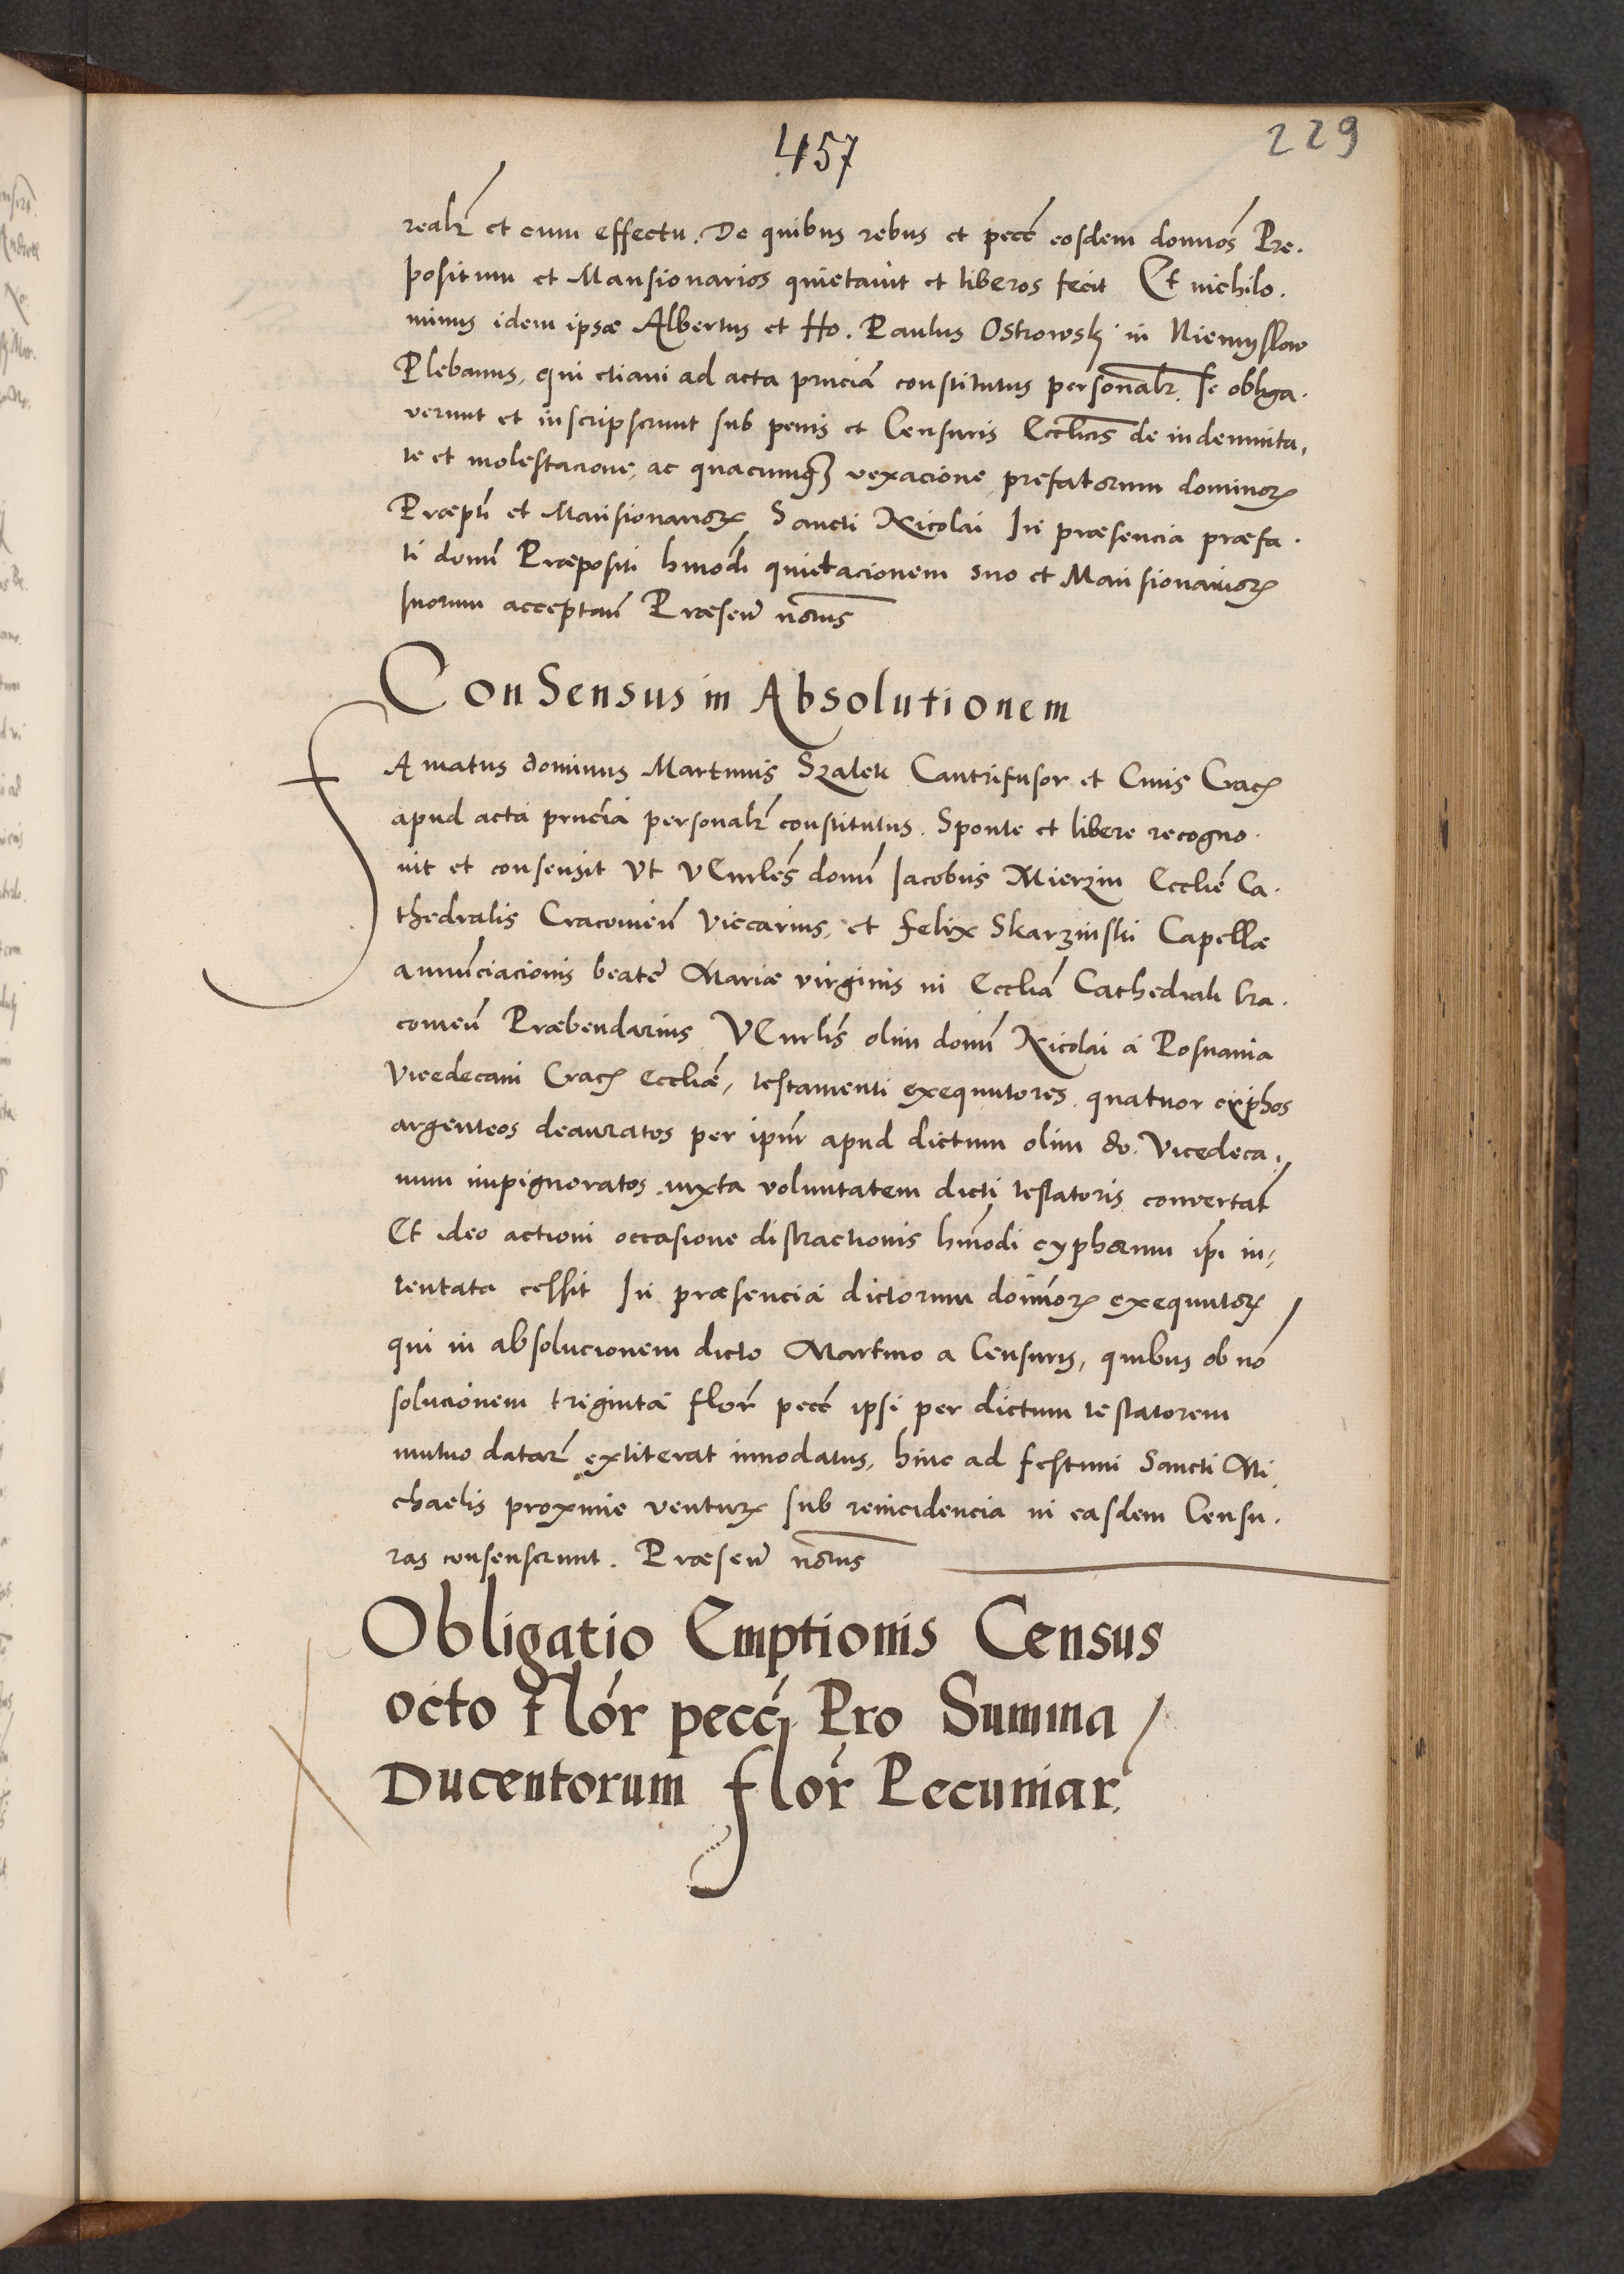 457
229
realr et cum effectu. De quibus rebus et pece eosdem domnos Pre.
positum et Mansionarios quietavit et liberos fecit Et nichilo.
minus idem ipse Albertus et Ho. Paulus Ostrowskj in Niemyslow
Plebanus, qui etiam ad acta prncia constitutus personalr. se obliga.
verunt et inscripserunt sub penis et Censuris Ecclicis de indemnita,
te et molestacione, ac quacumqz vexacione prefatorum dominorꝝ
Præpti et Mansionariorꝝ Sancti Nicolai In præsencia præfa.
ti domi Præpositi hmodi quietacionem suo et Mansionariorꝝ
suorum acceptan Præsen notus
ConSensus in Absolutionem
Famatus dominus Martinus Szalek Cantrifusor et Civis Crac
apud acta prncia personalr constitutus. Sponte et libere recogno.
vit et consensit Vt VEnrles domi Jacobus Mierzin Ecclie Ca.
thedralis Cracovien Viccarius, et Felix Skarzinski Capellæ
annunciacionis beate Mariæ virginis in Ecclia Cathedrali Cra.
covien Præbendarius VEnrlis olim domi Nicolai a Posnania
Vicedecani Crac Eccliæ, testamenti exequutores quatuor ciphos
argenteos deauratos per ipm apud dictum olim do. Vicedeca,
num impignoratos iuxta voluntatem dicti testatoris convertat
Et ideo actioni occasione distractionis hmodi cyphorum ipi in,
tentata cessit In præsencia dictorum domorꝝ exequutorꝝ
qui in absolucionem dicto Martino a Censuris, quibus ob no
solucionem triginta flor pece ipsi per dictum testatorem
mutuo datar extiterat innodatus, hinc ad festum Sancti Mi
chaelis proxime venturꝝ sub reincidencia in easdem Censu.
ras consenserunt. Præsen notus
Obligatio Emptionis Census
octo Flor pecej Pro Summa
Ducentorum flor Pecuniar.